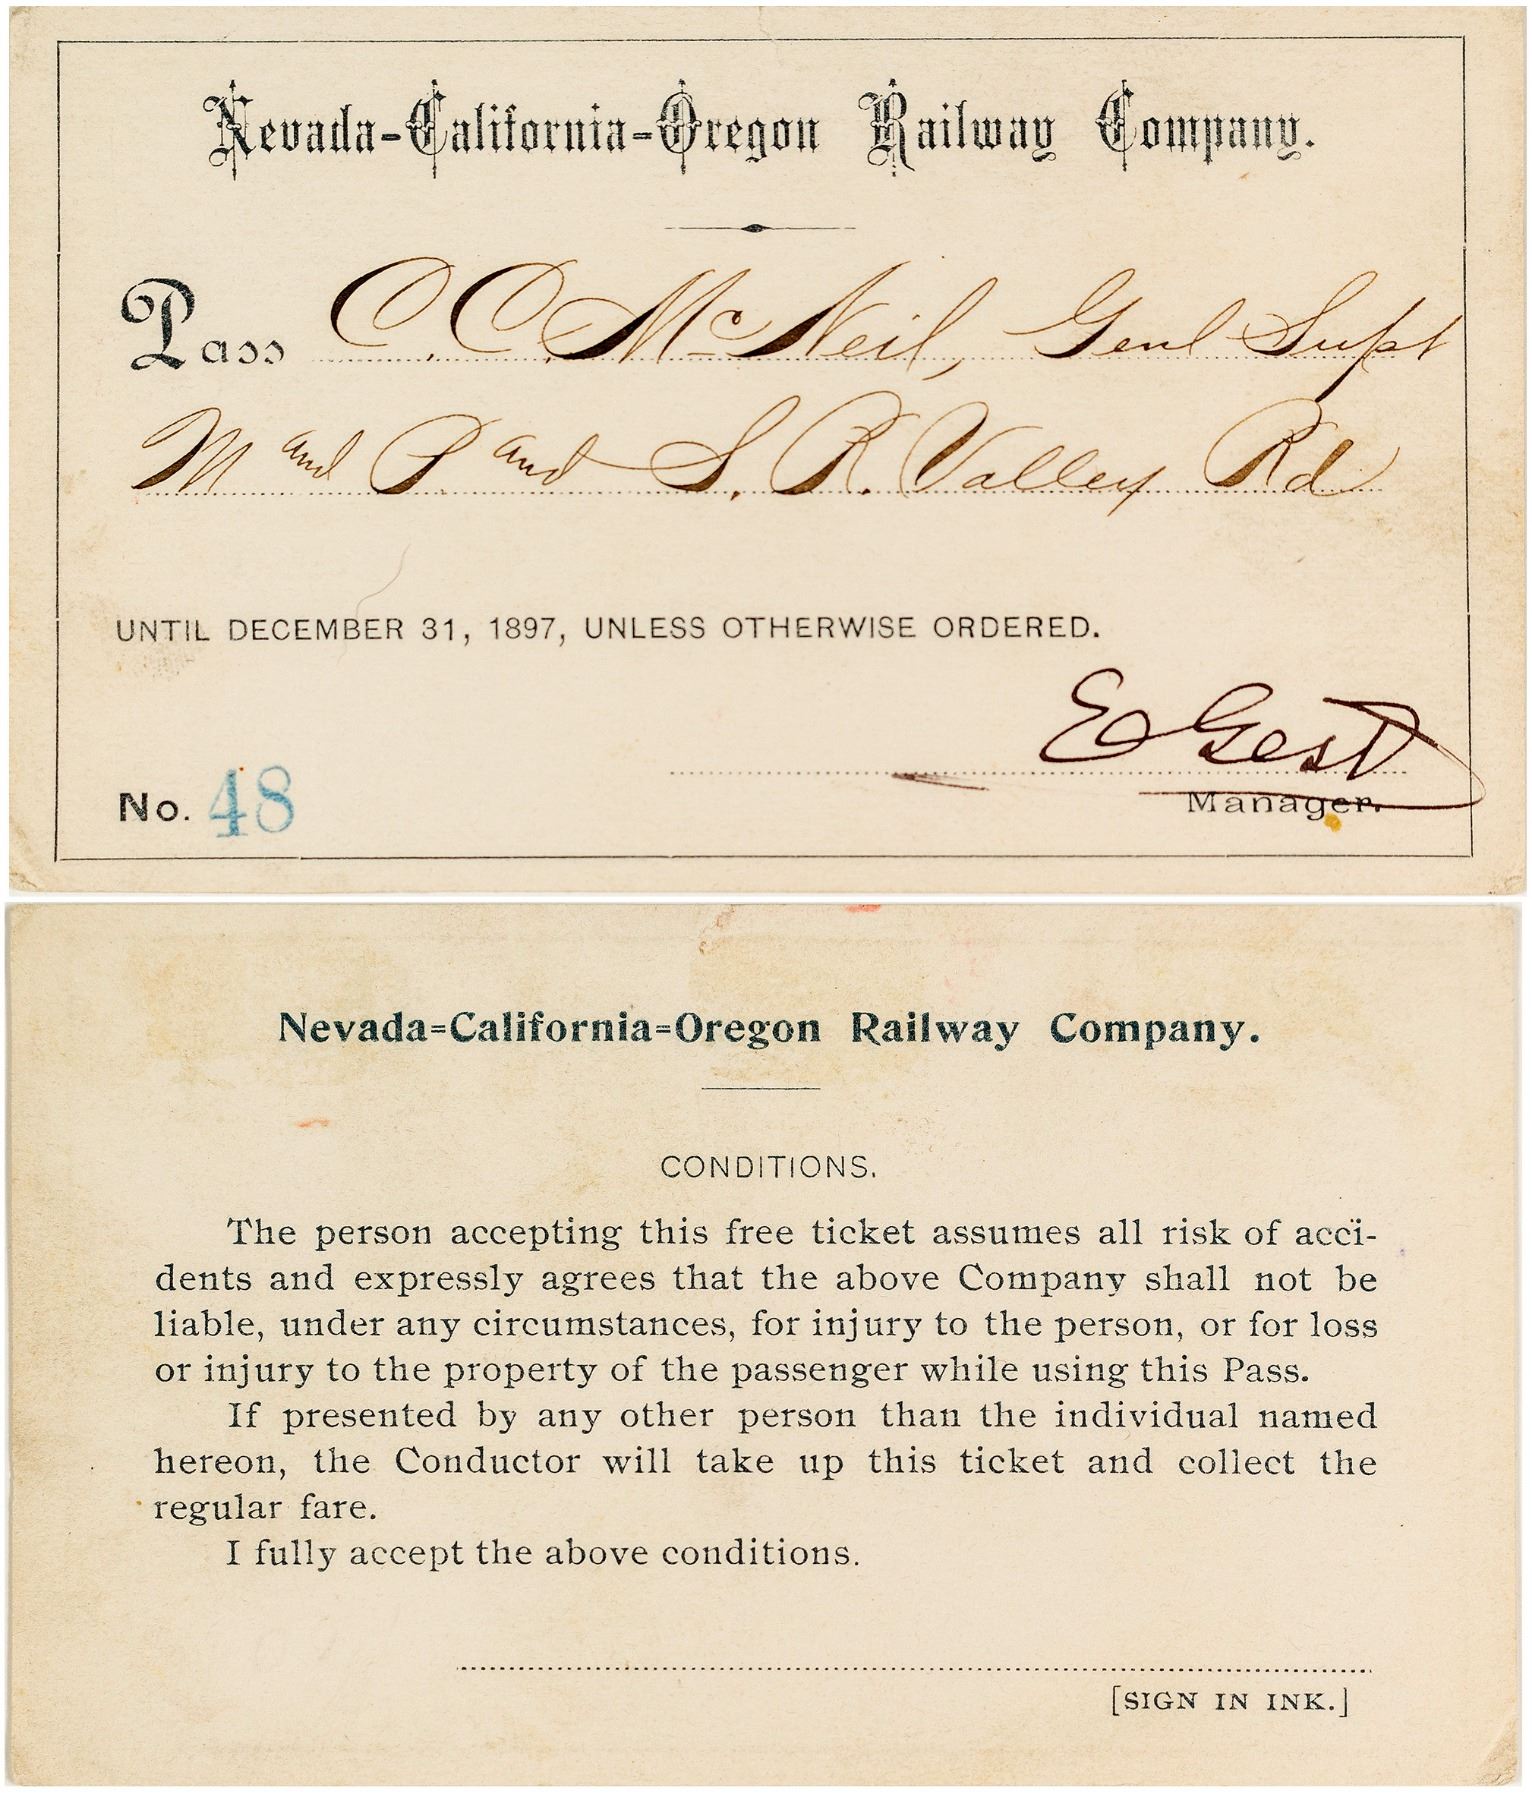 Nevada-California-Oregon Railway Company.
Pass C. C. McNeil, Genl Supt
M and P. and S. R. Valley Rd
UNTIL DECEMBER 31, 1897, UNLESS OTHERWISE ORDERED.
E Gest
Manager.
No. 48
Nevada=California=Oregon Railway Company.
CONDITIONS.
The person accepting this free ticket assumes all risk of acci-
dents and expressly agrees that the above Company shall not be
liable, under any circumstances, for injury to the person, or for loss
or injury to the property of the passenger while using this Pass.
If presented by any other person than the individual named
hereon, the Conductor will take up this ticket and collect the
regular fare.
I fully accept the above conditions.
[SIGN IN INK.]